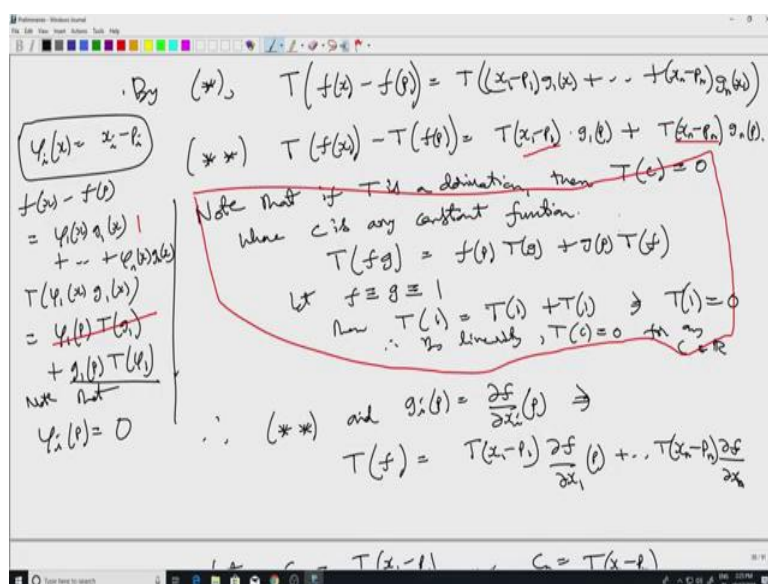 Preliminaries - Windows Journal
File Edit View Insert Actions Tools Help
By (*), T(f(x) - f(p)) = T((x₁-p₁)g₁(x) + ... + (xₙ-pₙ)gₙ(x))
φᵢ(x) = xᵢ - pᵢ
(**) T(f(x)) - T(f(p)) = T(x₁-p₁) · g₁(p) + T(xₙ-pₙ) gₙ(p).
f(x) - f(p)
= φ₁(x) g₁(x)
+ ... + φₙ(x) gₙ(x)
T(φ₁(x) g₁(x))
= φ₁(p) T(g₁)
+ g₁(p) T(φ₁)
Note that
φᵢ(p) = 0
Note that if T is a derivation, then T(c) = 0
where c is any constant function.
T(fg) = f(p) T(g) + g(p) T(f)
Let f ≡ g ≡ 1
Then T(1) = T(1) + T(1) ⇒ T(1) = 0
∴ By linearity, T(c) = 0 for any c ∈ ℝ
∴ (**) and gᵢ(p) = ∂f/∂xᵢ (p) ⇒
T(f) = T(x₁-p₁) ∂f/∂x₁ (p) + ... T(xₙ-pₙ) ∂f/∂xₙ
T(x₁-p₁) , cₙ = T(x-p)
Type here to search